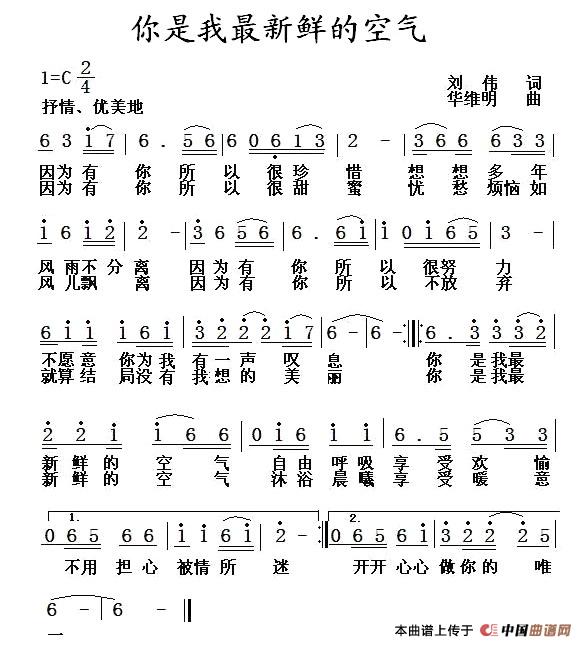 你是我最新鲜的空气
1=C 2/4
刘 伟 词
抒情、优美地
华维明 曲
6 3 i 7 | 6. 5 6 | 6 0 6 1 3 | 2 - | 3 6 6 6 3 3 |
因为有 你 所 以 很珍 惜 想 想 多 年
因为有 你 所 以 很甜 蜜 忧 愁 烦恼 如
i 6 i 2 | 2 - | 3 6 5 6 | 6. 6 i | i 0 i 6 5 | 3 - |
风 雨不 分 离 因为 有 你 所 以 很努 力
风 儿飘 离 因为 有 你 所 以 不放 弃
6 i i i 6 i | 3 2 2 2 i 7 | 6 - | 6 - :||: 6. 3 3 3 2 |
不愿意 你为我 有一声 叹 息 你 是我最
就算结 局没有 我想的 美 丽 你 是我最
2 2 i i 6 6 | 0 i 6 i i | 6. 5 5 3 3 |
新 鲜 的 空 气 自由 呼吸 享 受 欢 愉
新 鲜 的 空 气 沐浴 晨曦 享 受 暖 意
1. 2.
0 6 5 6 6 | i i 6 i | 2 - :|| 0 6 5 6 i | 3 2 2 2 5 |
不用 担心 被情 所 迷 开开 心心 做你的 唯
6 - | 6 - ||
一
本曲谱上传于 中国曲谱网